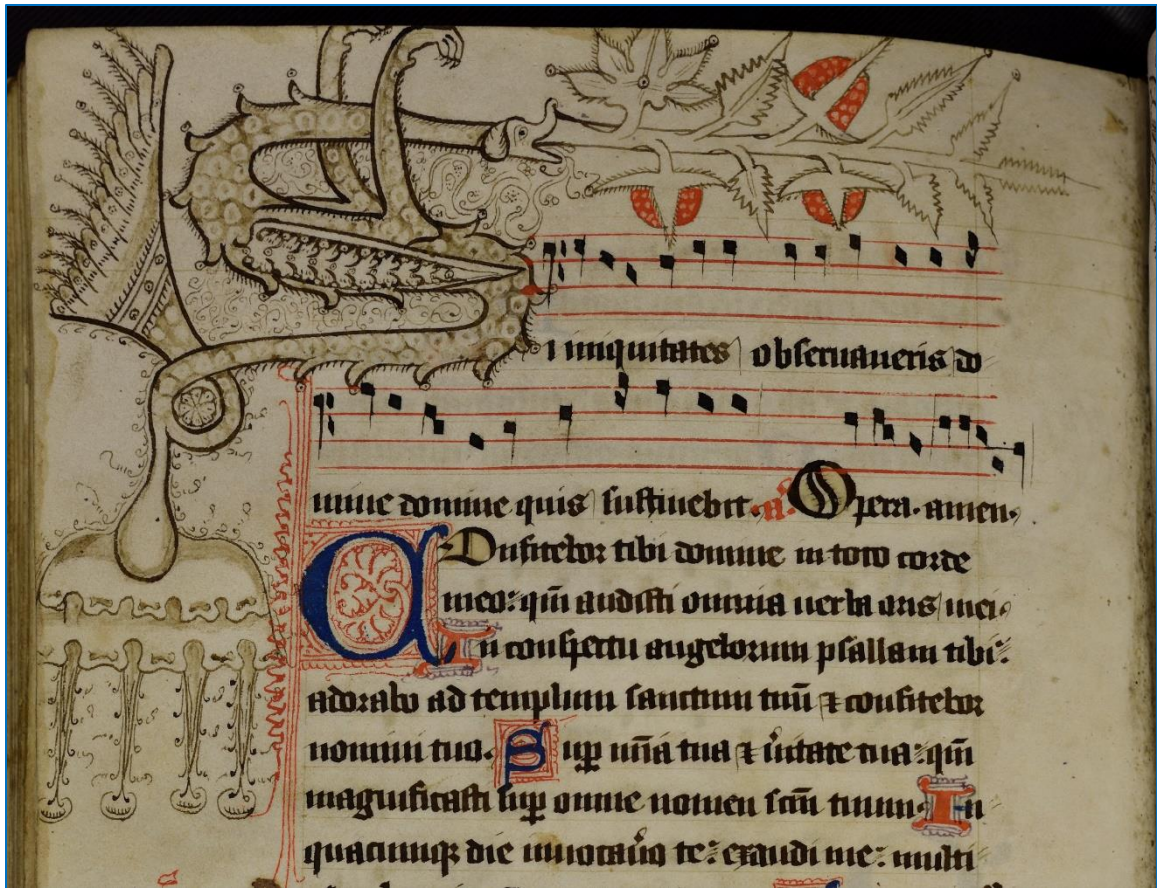 i iniquitates obseruaueris do
mine domine quis sustinebit. a. Opera. amen.
Confitebor tibi domine in toto corde
meo: qm̄ audisti omnia uerba oris mei.
In conspectu angelorum psallam tibi:
adorabo ad templum sanctum tuū ⁊ confitebor
nomini tuo. Suꝑ mīa tua ⁊ ūitate tua: qm̄
magnificasti suꝑ omne nomen scm̄ tuum. In
quacumqꝫ die inuocauo te: exaudi me: multi